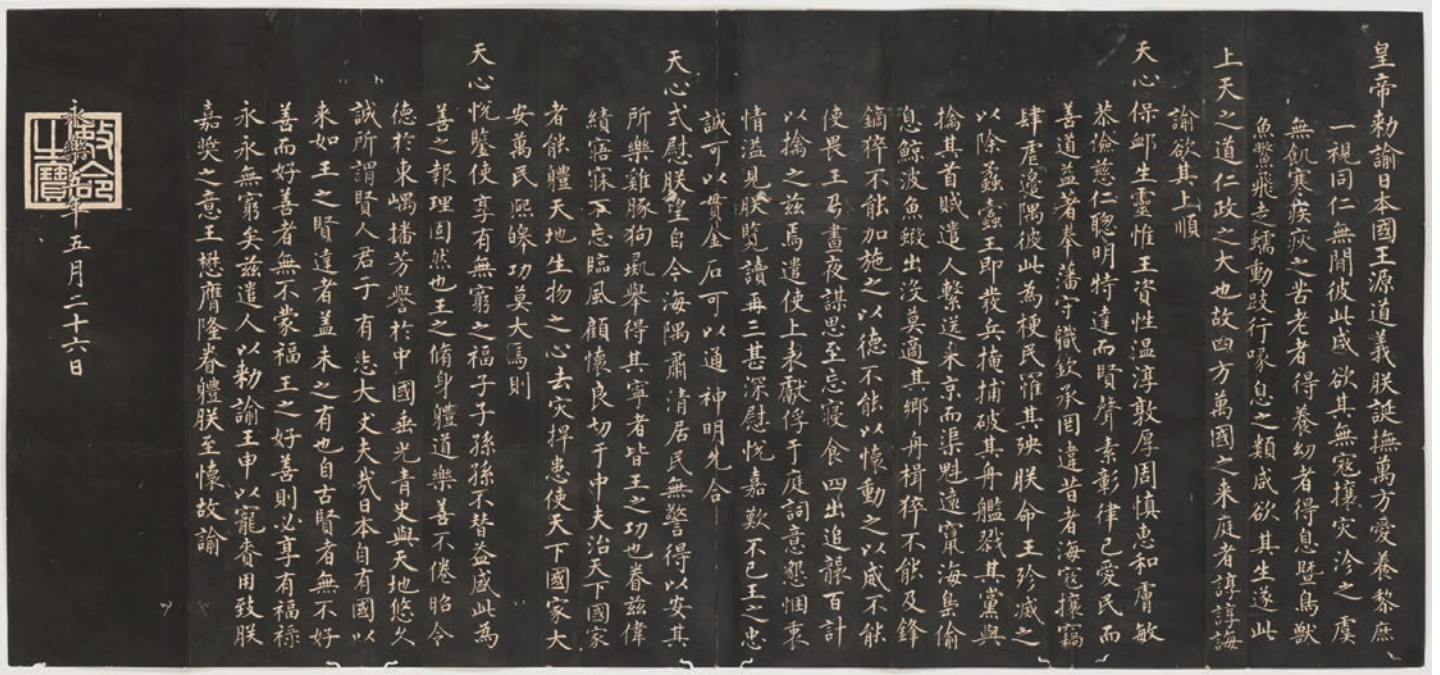 皇帝勑諭日本國王源道義朕誕撫萬方愛養黎庶
一視同仁無間彼此咸欲其無寇攘灾沴之虞
無飢寒疾疢之苦老者得養幼者得息暨鳥獸
魚鱉飛走蠕動跂行喙息之類咸欲其生遂此
上天之道仁政之大也故四方萬國之来庭者諄諄誨
諭欲其上順
天心保卹生靈惟王資性温淳敦厚周慎惠和膚敏
恭儉慈仁聦明特達而賢聲素彰律己愛民而
善道益著奉藩守職欽承罔違昔者海寇攘竊
肆虐邊隅彼此為梗民罹其殃朕命王殄滅之
以除蟊蠹王即發兵掩捕破其舟艦戮其黨與
擒其首賊遣人繫送来京而渠魁遠竄海島偷
息鯨波魚鰕出沒莫適其鄉舟楫猝不能及鋒
鏑猝不能加施之以德不能以懷動之以威不能
使畏王乃晝夜謀思至忘寢食四出追襲百計
以擒之兹焉遣使上表獻俘于庭詞意懇悃衷
情溢見朕覽讀再三甚深慰悅嘉歎不已王之忠
誠可以貫金石可以通神明允合
天心式慰朕望自今海隅肅清居民無警得以安其
所樂雞豚狗彘舉得其寧者皆王之功也眷兹偉
績寤寐不忘臨風顧懷良切于中夫治天下國家
者能體天地生物之心去灾捍患使天下國家大
安萬民熙皞功莫大焉則
天心悅鑒使享有無窮之福子子孫孫不替益盛此為
善之報理固然也王之脩身體道樂善不倦昭令
德於東嵎播芳譽於中國垂光青史與天地悠久
誠所謂賢人君子有志大丈夫哉日本自有國以
来如王之賢達者蓋未之有也自古賢者無不好
善而好善者無不蒙福王之好善則必享有福祿
永永無窮矣兹遣人以勑諭王申以寵賚用致朕
嘉奬之意王懋膺隆眷體朕至懷故諭
永樂年五月二十六日
敕命之寶